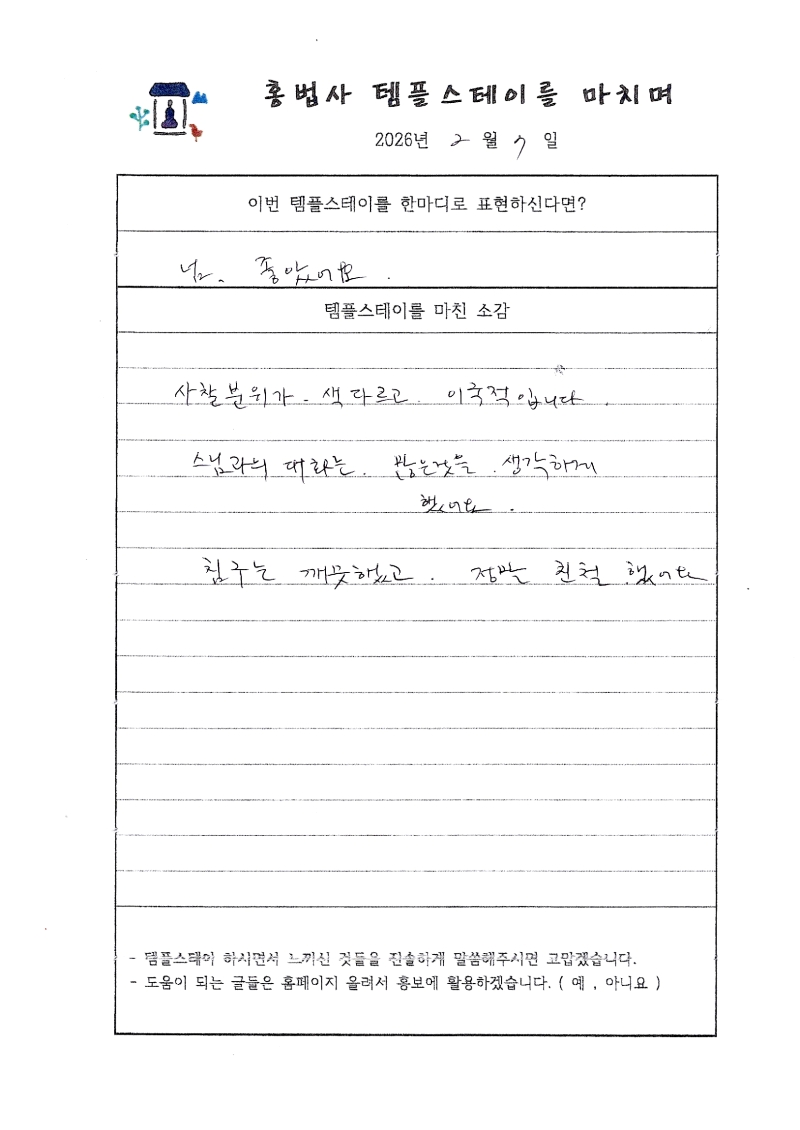 홍법사 템플스테이를 마치며
2026년 2 월 7 일
이번 템플스테이를 한마디로 표현하신다면?
넘. 좋았어요.
템플스테이를 마친 소감
사찰분위가. 색다르고. 이국적입니다.
스님과의 대화는. 많은것을. 생각하게
했어요.
침구는 깨끗했고. 정말 친절 했어요
- 템플스테이 하시면서 느끼신 것들을 진솔하게 말씀해주시면 고맙겠습니다.
- 도움이 되는 글들은 홈페이지 올려서 홍보에 활용하겠습니다. ( 예 , 아니요 )